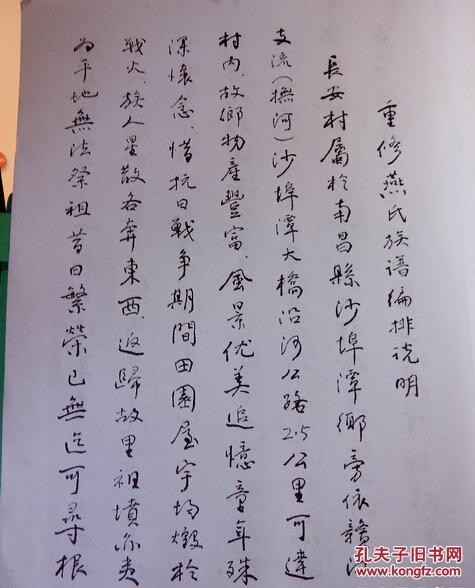 重修燕氏族谱编排说明
長安村屬於南昌縣沙埠潭鄉旁依贛江
支流(撫河)沙埠潭大橋沿河公路2.5公里可達
村内、故鄉物產豐富、風景优美追憶童年殊
深懷念、惜抗日戰争期間田園屋宇均燬於
戰火、族人星散各奔東西、返歸故里祖墳亦夷
为平地無法祭祖昔日繁榮已無迄可尋根
孔夫子旧书网
kongfz.com